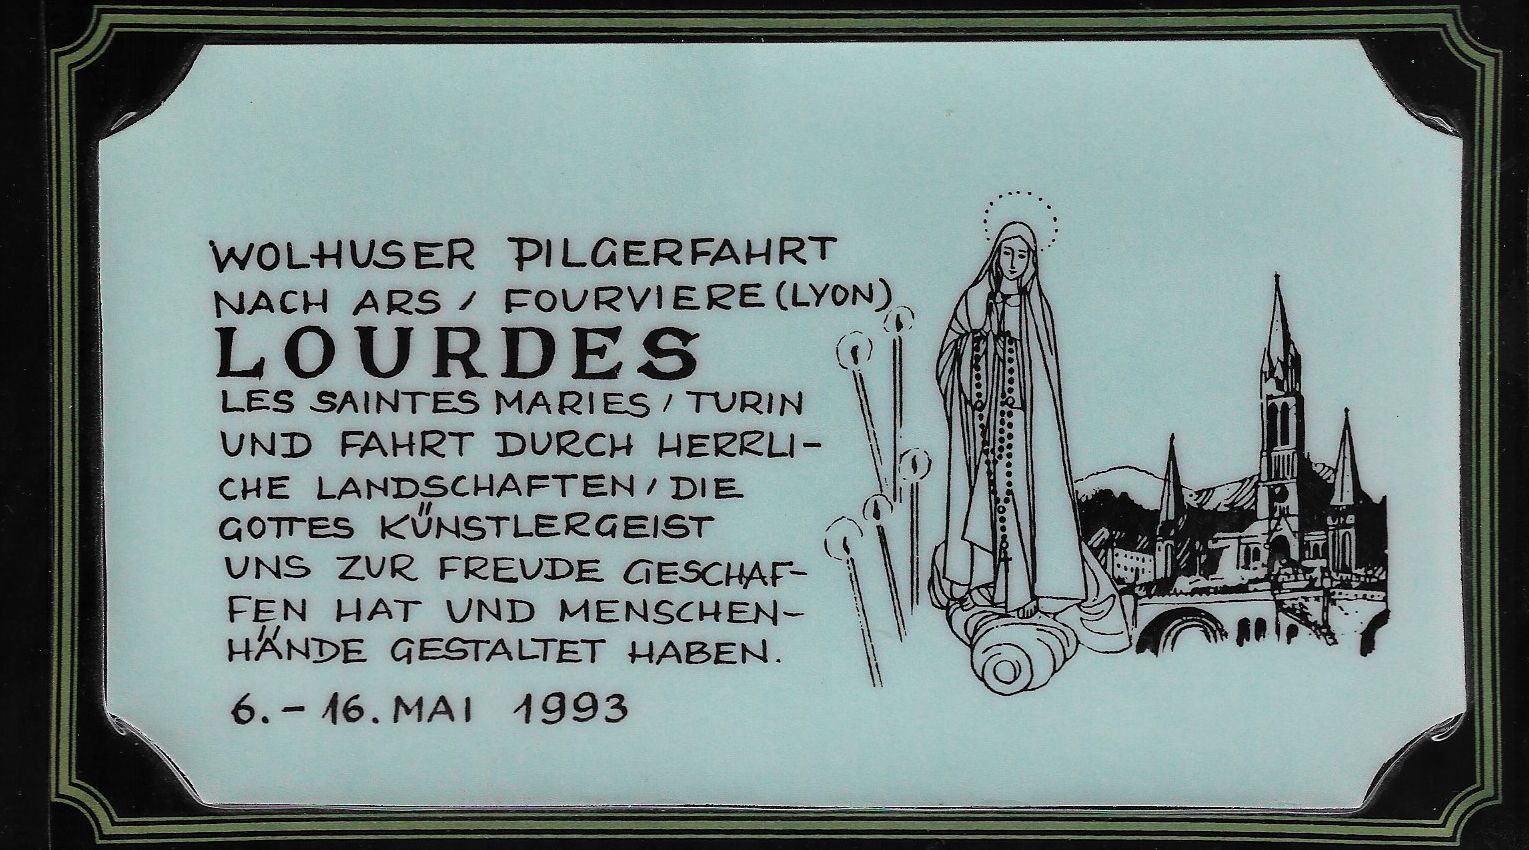 WOLHUSER PILGERFAHRT
NACH ARS / FOURVIERE (LYON)
LOURDES
LES SAINTES MARIES / TURIN
UND FAHRT DURCH HERRLI-
CHE LANDSCHAFTEN / DIE
GOTTES KÜNSTLERGEIST
UNS ZUR FREUDE GESCHAF-
FEN HAT UND MENSCHEN-
HÄNDE GESTALTET HABEN.
6. - 16. MAI 1993